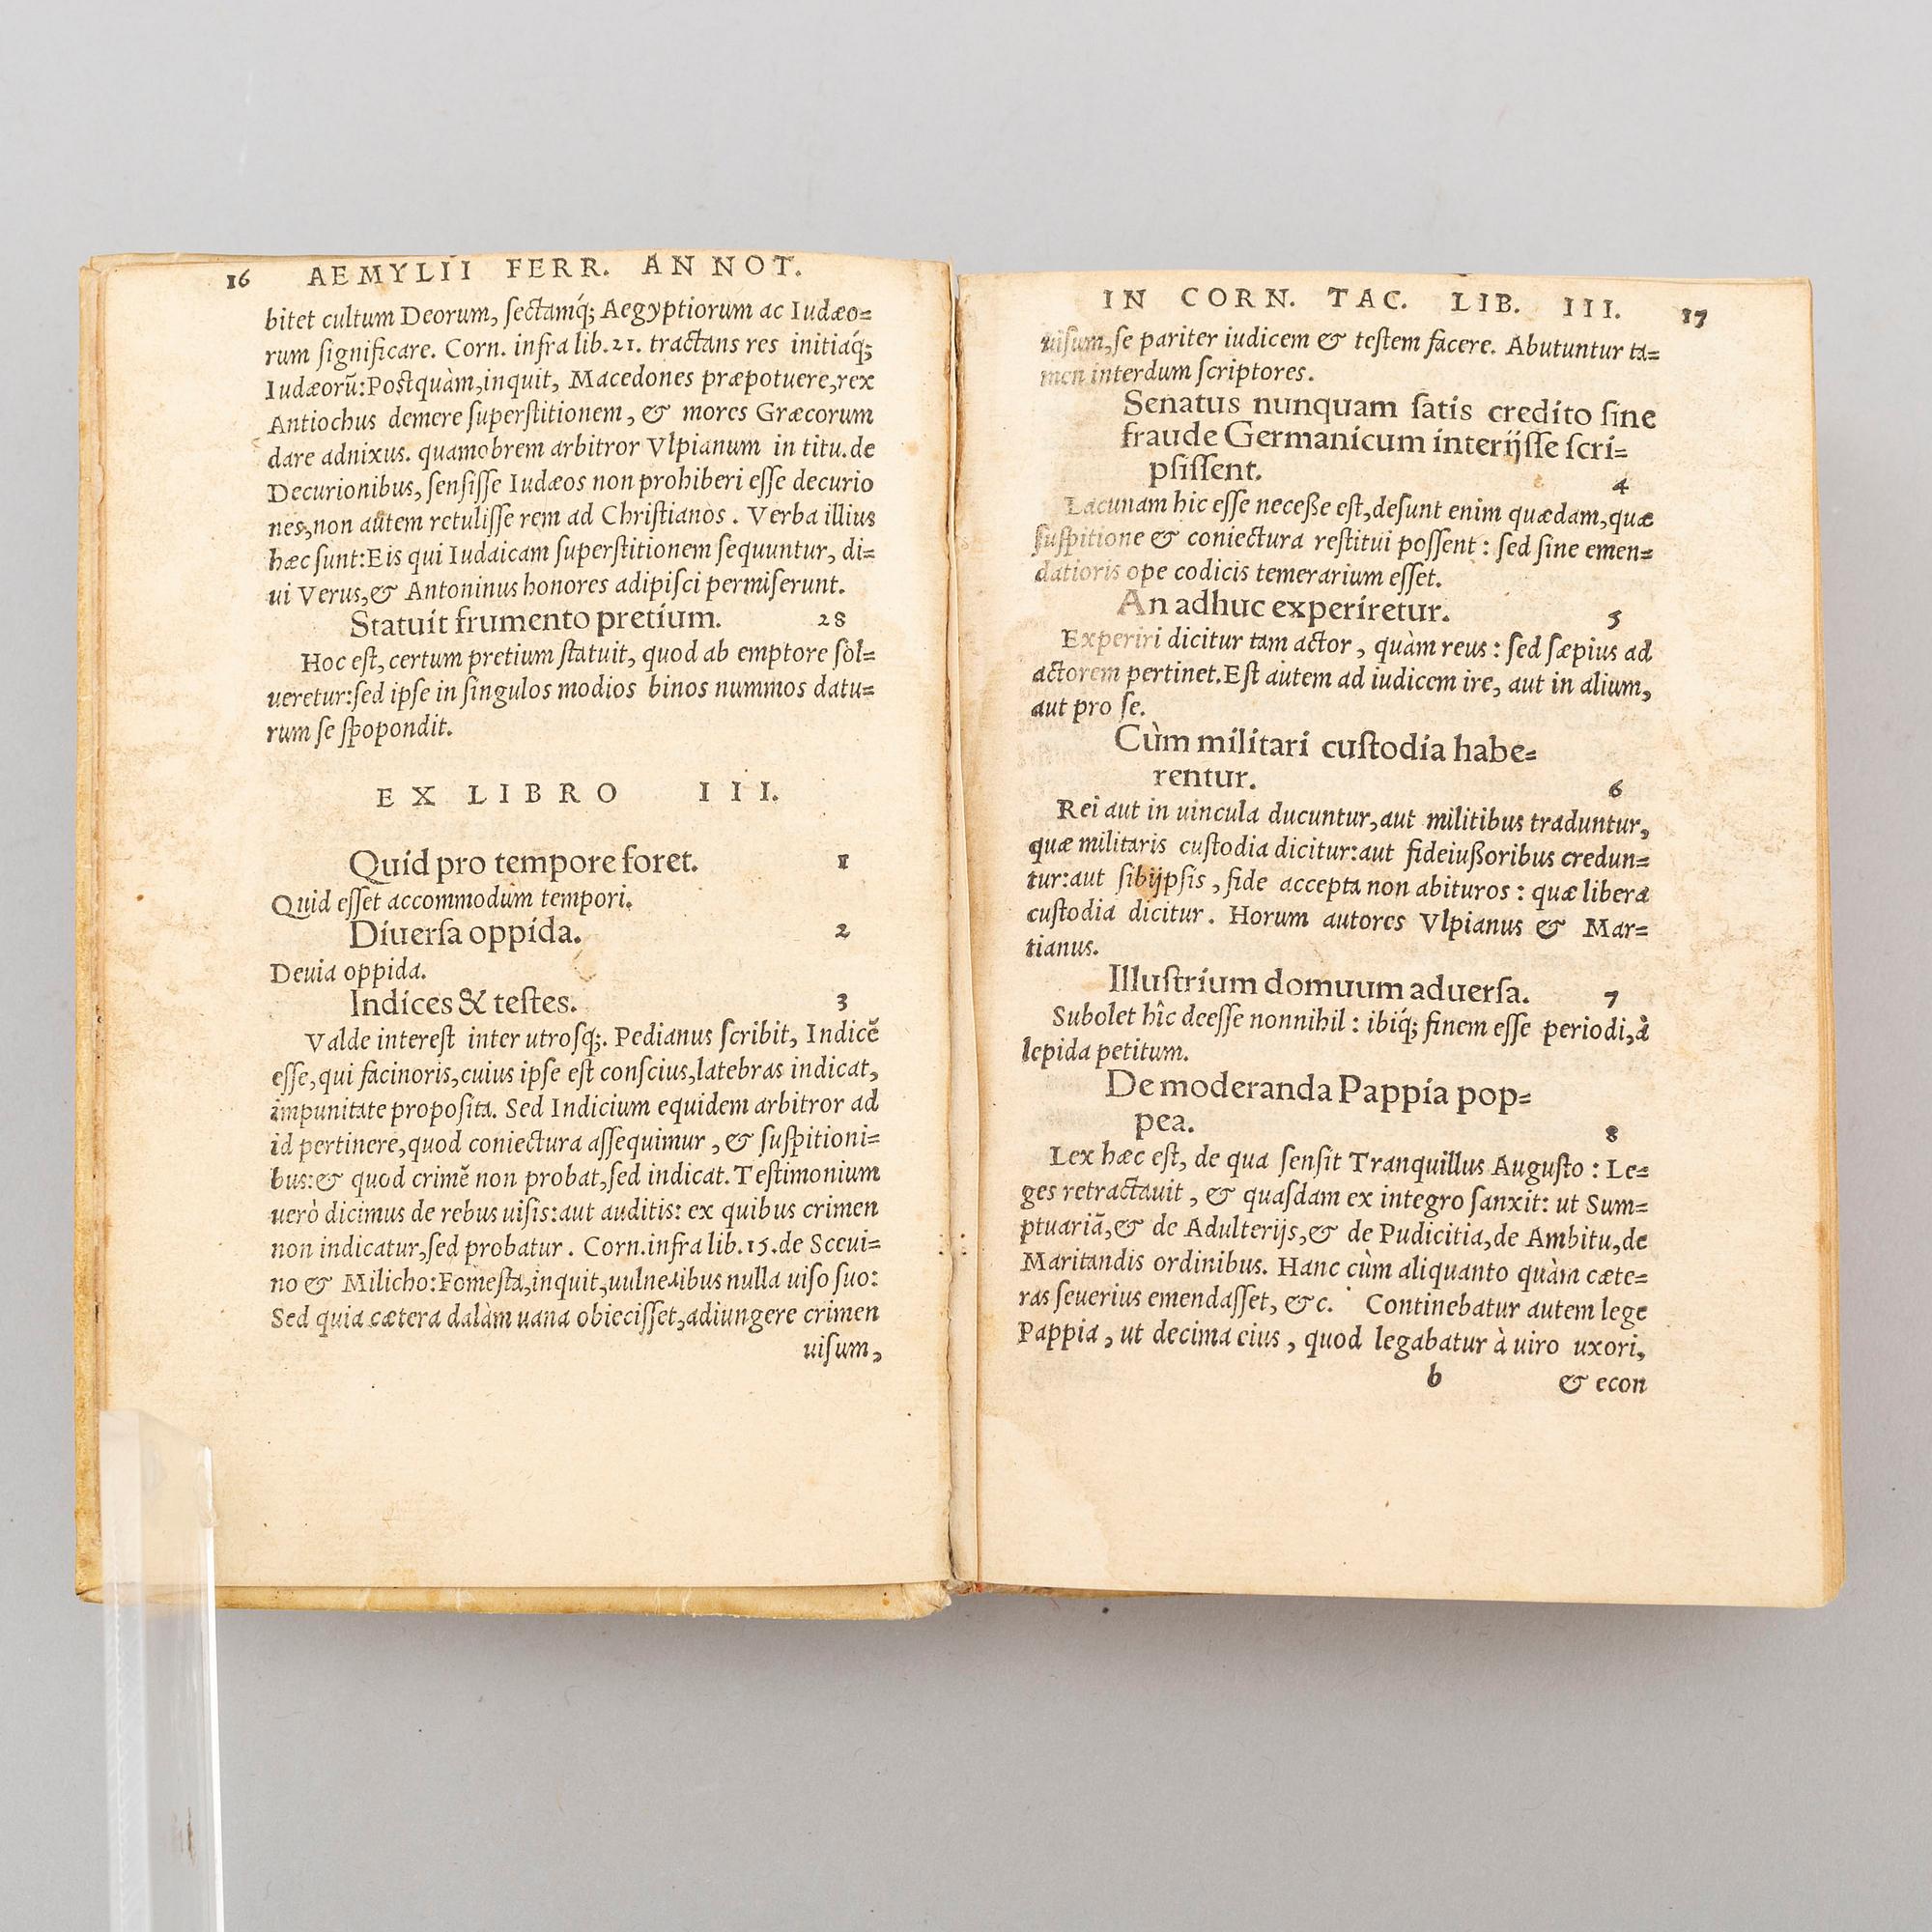 16 AEMYLII FERR. ANNOT.
bitet cultum Deorum, ſectamq́; Aegyptiorum ac Iudæo=
rum ſignificare. Corn. infra lib.21. tractans res initiaq́;
Iudæorũ:Postquàm,inquit, Macedones præpotuere,rex
Antiochus demere ſuperſtitionem, & mores Græcorum
dare adnixus. quamobrem arbitror Vlpianum in titu.de
Decurionibus, ſenſiſſe Iudæos non prohiberi eſſe decurio
nes,non autem retuliſſe rem ad Chriſtianos. Verba illius
hæc ſunt:Eis qui Iudaicam ſuperſtitionem ſequuntur, di=
ui Verus,& Antoninus honores adipiſci permiſerunt.
Statuit frumento pretium. 28
Hoc eſt, certum pretium ſtatuit, quod ab emptore ſol=
ueretur:ſed ipſe in ſingulos modios binos nummos datu=
rum ſe ſpopondit.
EX LIBRO III.
Quid pro tempore foret. 1
Quid eſſet accommodum tempori.
Diuerſa oppida. 2
Deuia oppida.
Indices & teſtes. 3
Valde intereſt inter utroſq;. Pedianus ſcribit, Indicẽ
eſſe,qui facinoris,cuius ipſe est conſcius,latebras indicat,
impunitate propoſita. Sed Indicium equidem arbitror ad
id pertinere,quod coniectura aſſequimur, & ſuſpitioni=
bus:& quod crimẽ non probat,ſed indicat. Teſtimonium
uerò dicimus de rebus uiſis:aut auditis: ex quibus crimen
non indicatur,ſed probatur. Corn.infra lib.15.de Sceui=
no & Milicho:Fomeſta,inquit,uulneribus nulla uiſo ſuo:
Sed quia cætera dalàm uana obieciſſet,adiungere crimen
uiſum,
IN CORN. TAC. LIB. III. 17
uiſum,ſe pariter iudicem & teſtem facere. Abutuntur ta=
men interdum ſcriptores.
Senatus nunquam ſatis credito ſine
fraude Germanicum interijſſe ſcri=
pſiſſent. 4
Lacunam hic eſſe neceße eſt,deſunt enim quædam,quæ
ſuſpitione & coniectura reſtitui poſſent: ſed ſine emen=
datioris ope codicis temerarium eſſet.
An adhuc experiretur. 5
Experiri dicitur tam actor, quàm reus: ſed ſæpius ad
actorem pertinet.Eſt autem ad iudicem ire, aut in alium,
aut pro ſe.
Cùm militari cuſtodia habe=
rentur. 6
Rei aut in uincula ducuntur,aut militibus traduntur,
quæ militaris cuſtodia dicitur:aut fideiußoribus credun=
tur:aut ſibijpſis, fide accepta non abituros: quæ libera
cuſtodia dicitur. Horum autores Vlpianus & Mar=
tianus.
Illuſtrium domuum aduerſa. 7
Subolet hîc deeſſe nonnihil: ibiq́; finem eſſe periodi,à
lepida petitum.
De moderanda Pappia pop=
pea. 8
Lex hæc eſt, de qua ſenſit Tranquillus Auguſto: Le=
ges retractauit, & quaſdam ex integro ſanxit: ut Sum=
ptuariã,& de Adulterijs,& de Pudicitia,de Ambitu,de
Maritandis ordinibus. Hanc cùm aliquanto quàm cæte=
ras ſeuerius emendaſſet, &c. Continebatur autem lege
Pappia, ut decima eius, quod legabatur à uiro uxori,
b & econ